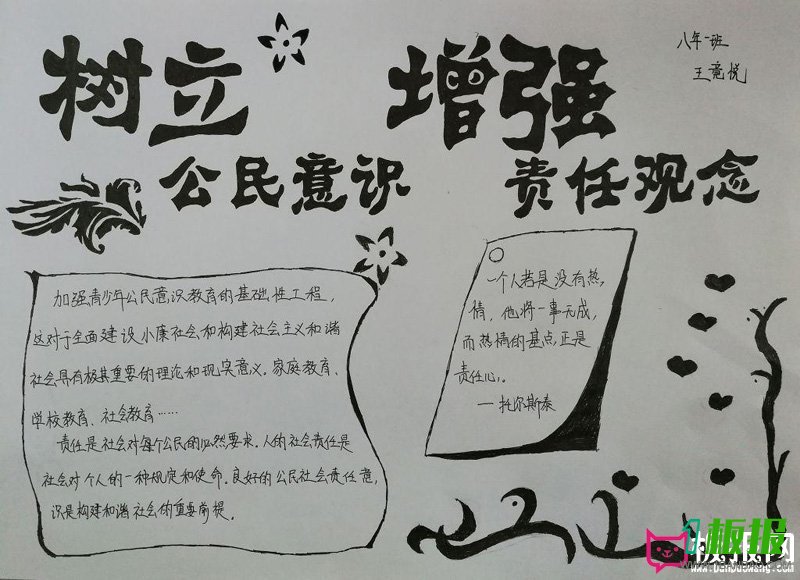 树立 增强
八年一班
王竟悦
公民意识 责任观念
加强青少年公民意识教育的基础性工程，
这对于全面建设小康社会和构建社会主义和谐
社会具有极其重要的理论和现实意义。家庭教育、
学校教育、社会教育……
责任是社会对每个公民的必然要求。人的社会责任是
社会对个人的一种规定和使命。良好的公民社会责任意
识是构建和谐社会的重要前提。
一个人若是没有热
情，他将一事无成，
而热情的基点正是
责任心。
—托尔斯泰
板报网
www.banbaowang.com